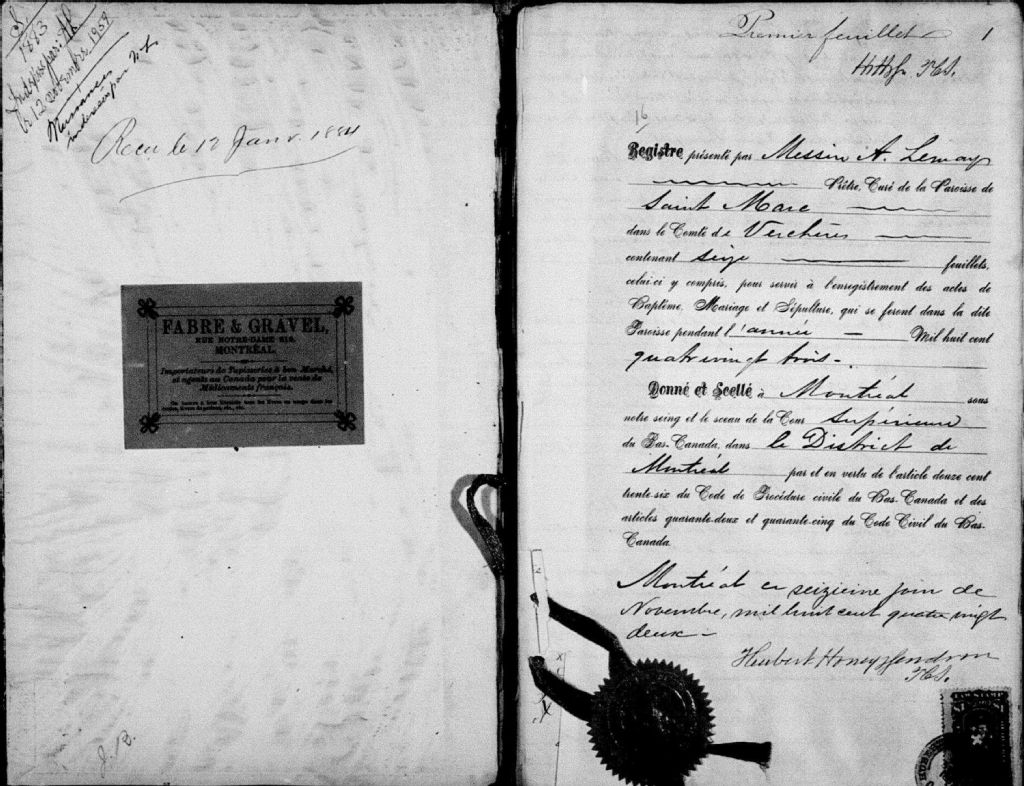 1883
le 12 novembre 1959
Recu le 12 Janv. 1884
FABRE & GRAVEL,
RUE NOTRE-DAME 219,
MONTRÉAL.
Importateurs de Tapisseries à bon Marché,
et agents au Canada pour la vente de
Médicaments français.
J. B.
Premier feuillet 1
16
Registre présenté par Messire A. Lemay
Prêtre, Curé de la Paroisse de
Saint Marc
dans le Comté de Verchères
contenant seize feuillets,
celui-ci y compris, pour servir à l'enregistrement des actes de
Baptême, Mariage et Sépulture, qui se feront dans la dite
Paroisse pendant l'année Mil huit cent
quatrevingt trois.
Donné et Scellé à Montréal sous
notre seing et le sceau de la Cour Supérieure
du Bas-Canada, dans le District de
Montréal par et en vertu de l'article douze cent
trente-six du Code de Procédure civile du Bas-Canada et des
articles quarante-deux et quarante-cinq du Code Civil du Bas-
Canada.
Montréal ce seizième jour de
Novembre, mil huit cent quatre vingt
deux